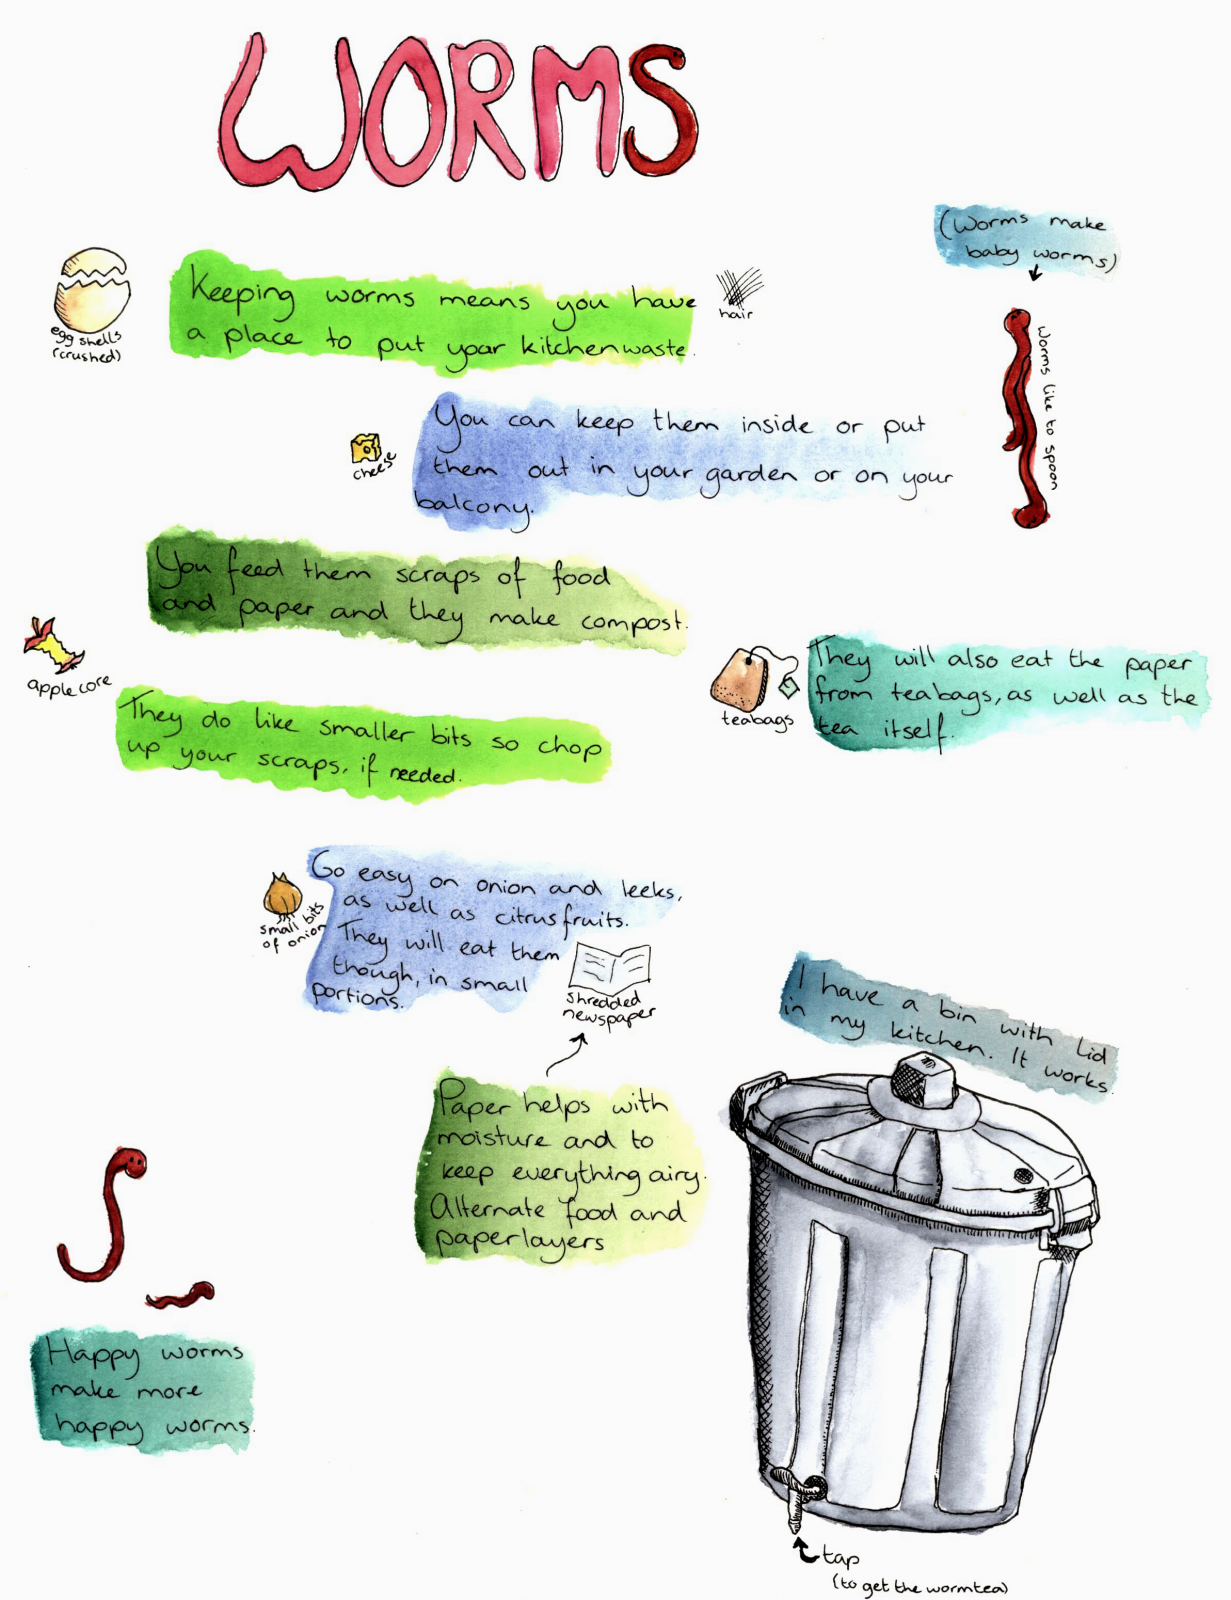 WORMS
(Worms make
baby worms)
egg shells
(crushed)
Keeping worms means you have
a place to put your kitchen waste.
hair
Worms like to spoon
cheese
You can keep them inside or put
them out in your garden or on your
balcony.
You feed them scraps of food
and paper and they make compost.
apple core
teabags
They will also eat the paper
from teabags, as well as the
tea itself.
They do like smaller bits so chop
up your scraps, if needed.
small bits
of onion
Go easy on onion and leeks,
as well as citrus fruits.
They will eat them
though, in small
portions.
shredded
newspaper
I have a bin with Lid
in my kitchen. It works
Paper helps with
moisture and to
keep everything airy.
Alternate food and
paper layers
Happy worms
make more
happy worms.
tap
(to get the wormtea)